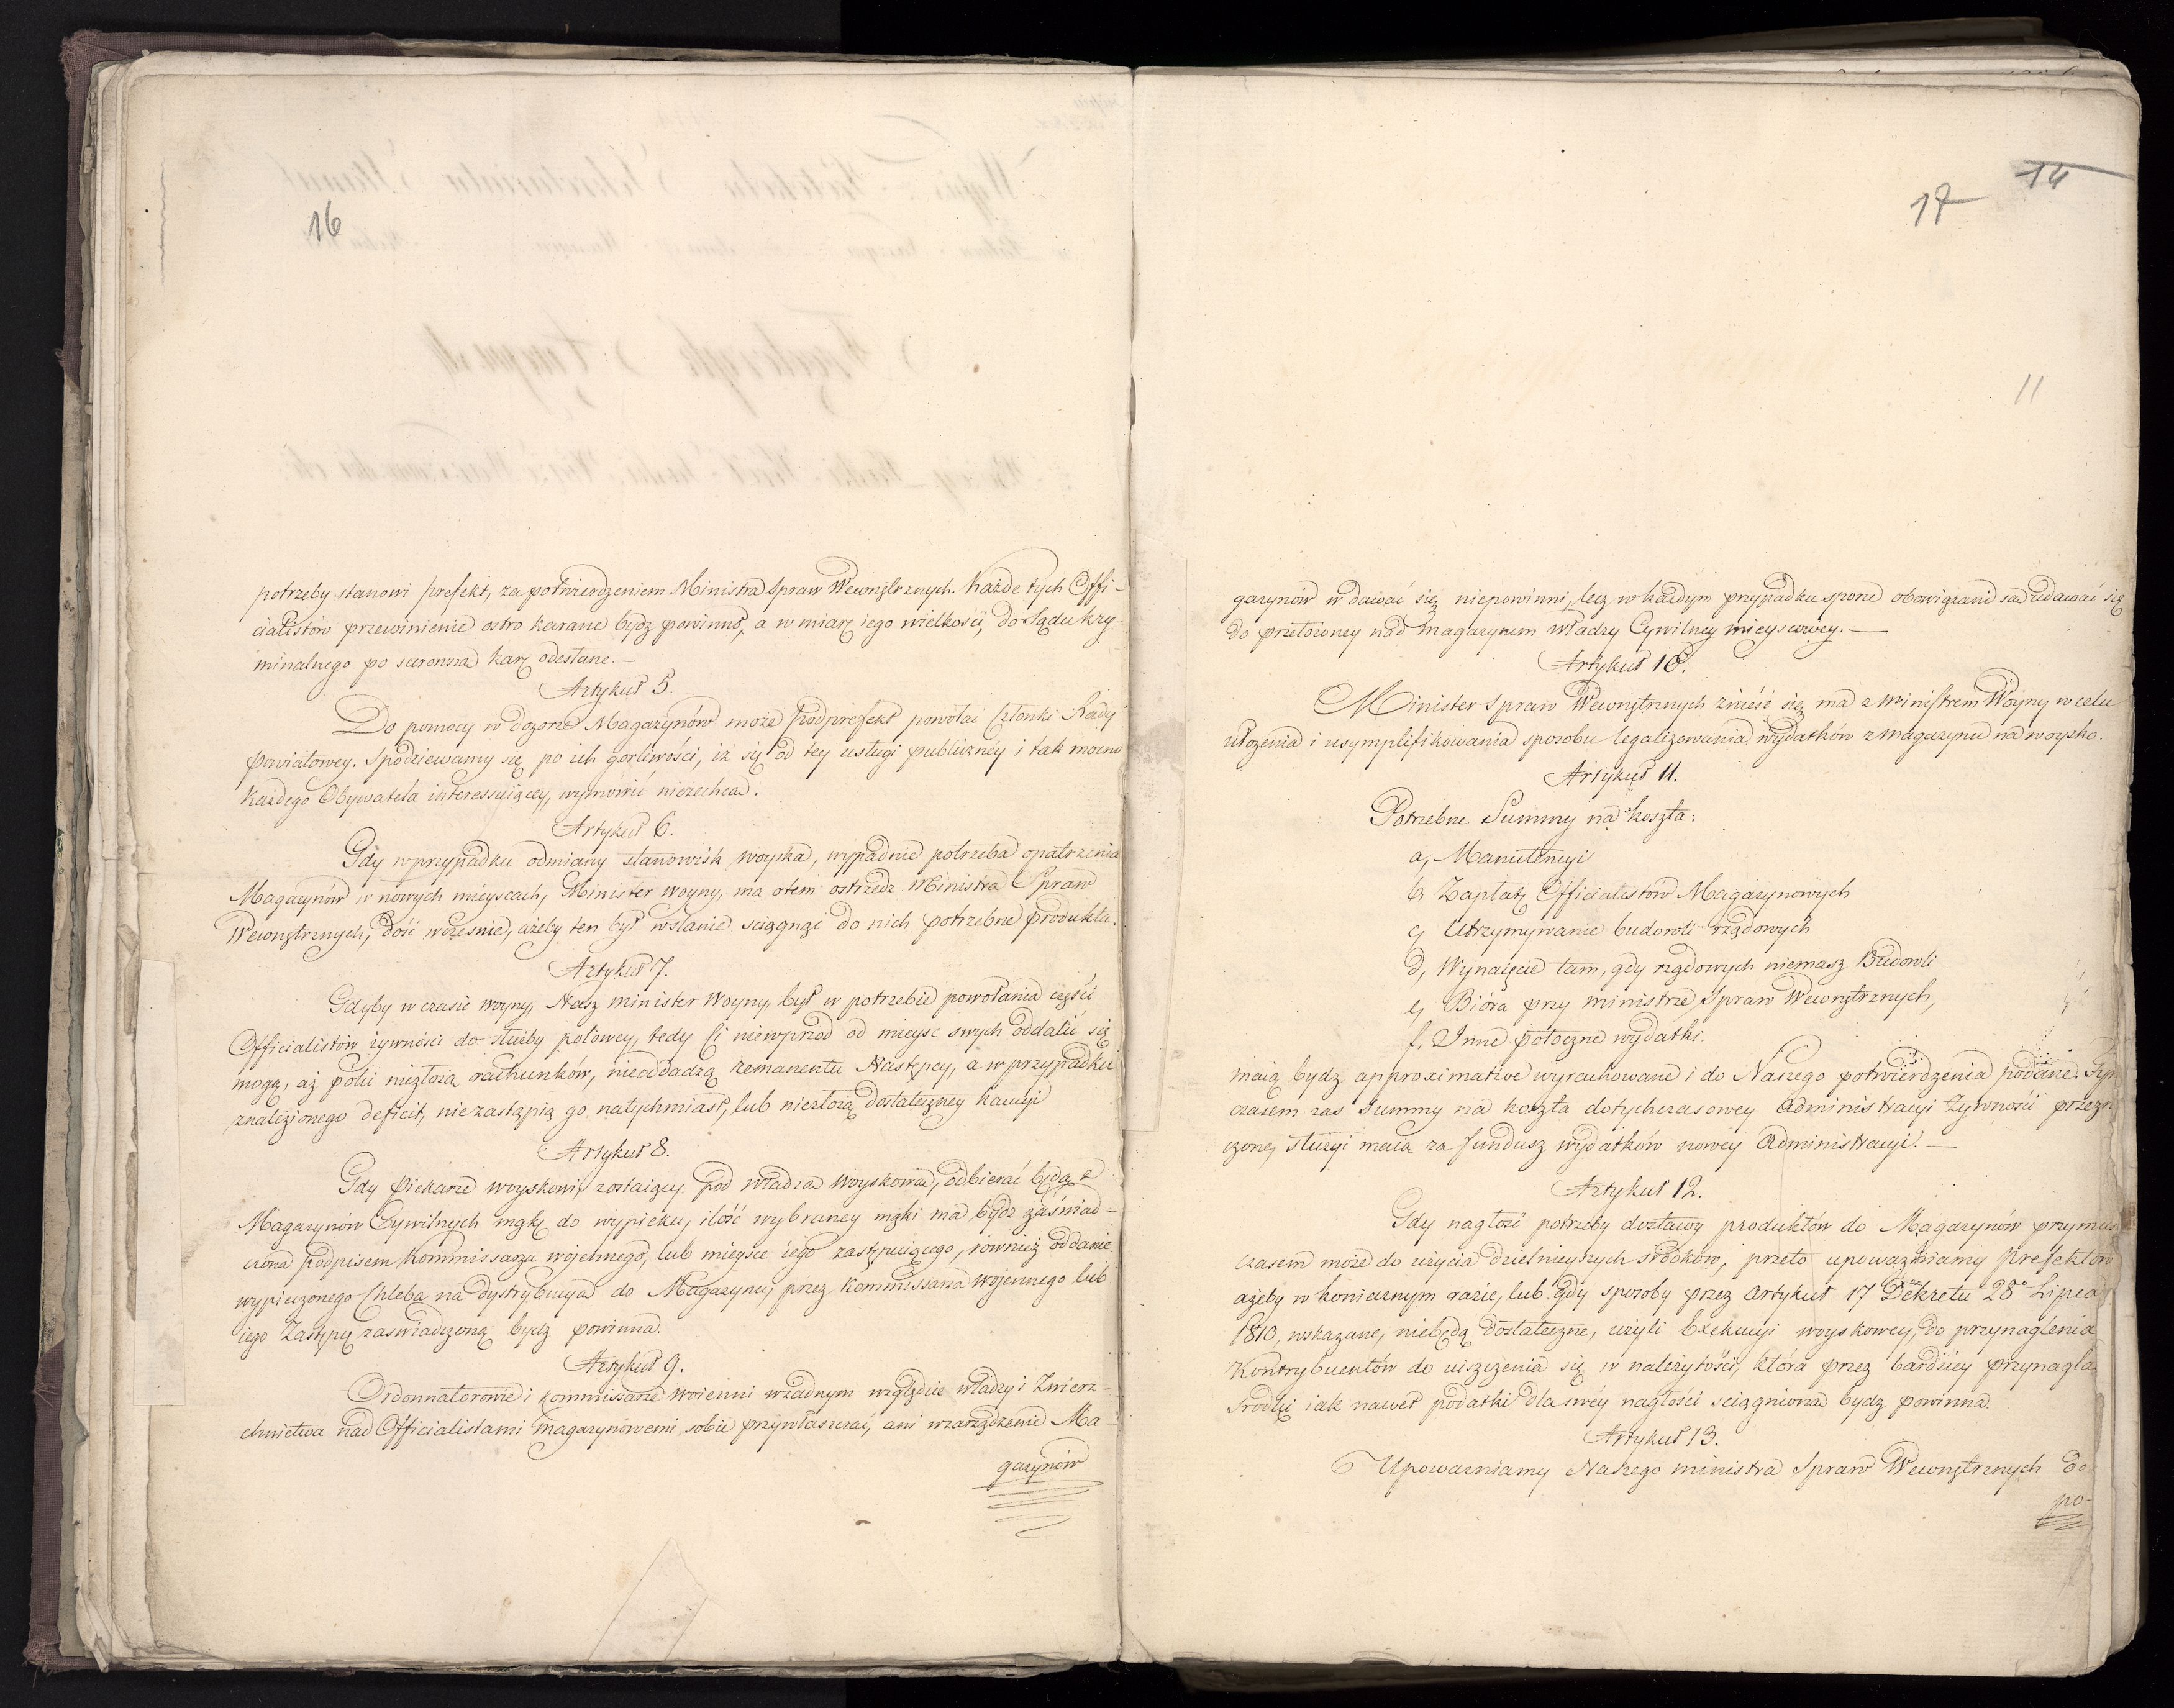 16
potrzeby stanowi prefekt, za potwierdzeniem Ministra Spraw Wewnętrznych. Każde tych Offi-
cialistów przewinienie ostro karane bydz powinno, a w miarę iego wielkości, do Sądu kry-
minalnego po surowszą karę odesłane. —
Artykuł 5.
Do pomocy w dozorze Magazynów może Podprefekt powołać Członki Rady
powiatowey. Spodziewamy się po ich gorliwości, iż się od tey usługi publiczney i tak mocno
Każdego Obywatela interessuiącey, wymówić niezechcą.
Artykuł 6.
Gdy w przypadku odmiany stanowisk woyska, wypadnie potrzeba opatrzenia
Magazynów w nowych mieyscach, Minister Woyny, ma o tem ostrzedz Ministra Spraw
Wewnętrznych, dość wcześnie, ażeby ten był wstanie sciągnąć do nich potrzebne produkta.
Artykuł 7.
Gdyby w czasie woyny, Nasz Minister Woyny, był w potrzebie powołania części
Officialistów żywności do służby polowey, tedy Ci niewprzód od mieysc swych oddalić się
mogą, aż póki niezłożą rachunków, nieoddadzą remanentu Następcy, a w przypadku
znalezionego deficit, nie zastąpią go natychmiast, lub niezłożą dostateczney kaucyi
Artykuł 8.
Gdy Piekarze woyskowi, zostaiący pod władzą Woyskową, odbierać będą z
Magazynów Cywilnych mąkę do wypieku, ilość wybraney mąki ma bydz zaświad-
czona podpisem Kommissarza wojennego, lub mieysce iego zastępuiącego, również oddanie
wypieczonego Chleba na dystrybucyą do Magazynu, przez Kommissarza Wojennego lub
iego Zastępcę zaświadczoną bydz powinna.
Artykuł 9.
Ordonnatorowie i Kommissarze woienni wżadnym względzie władzy i Zwierz-
chnictwa nad Officialistami magazynowemi sobie przywłaszczać, ani wzarządzenie Ma-
gazynów
14
17
11
gazynów wdawać się niepowinni, lecz w każdym przypadku sporze obowiązani są udawać się
do przełożoney nad magazynem władzy Cywilney mieyscowey. —
Artykuł 10.
Minister Spraw Wewnętrznych znieść się ma z Ministrem Woyny w celu
ułożenia i usymplifikowania sposobu legalizowania wydatków z magazynu na woysko.
Artykuł 11.
Potrzebne Summy na koszta:
a, Manutencyi
b, Zapłatę Officialistów Magazynowych
c, Utrzymywanie budowli rządowych
d, Wynaięcie tam, gdy rządowych niemasz Budowli
e, Bióra przy ministrze Spraw Wewnętrznych,
f, Inne potoczne wydatki.
maią bydz approximative wyrachowane i do Naszego potwierdzenia podane. Tym
czasem zas Summy na koszta dotychczasowey Administracyi Żywności przezn
czone, służyć maią za fundusz wydatków nowey Administracyi. —
Artykuł 12.
Gdy nagłość potrzeby dostawy produktów do Magazynów przymu
czasem może do użycia dzielnieyszych srodków, przeto upoważniamy Prefektów
ażeby w koniecznym razie, lub gdy sposoby przez Artykuł 17 Dekretu 28go Lipca
1810, wskazane, niebędą dostateczne, użyli Exekucyi woyskowey, do przynaglenia
Kontrybuentów do uiszczenia się w należytości, która przez bardziey przynagla
srodki iak nawet podatki dla swéy nagłości sciągniona bydz powinna
Artykuł 13.
Upoważniamy Naszego ministra Spraw Wewnętrznych do
po-